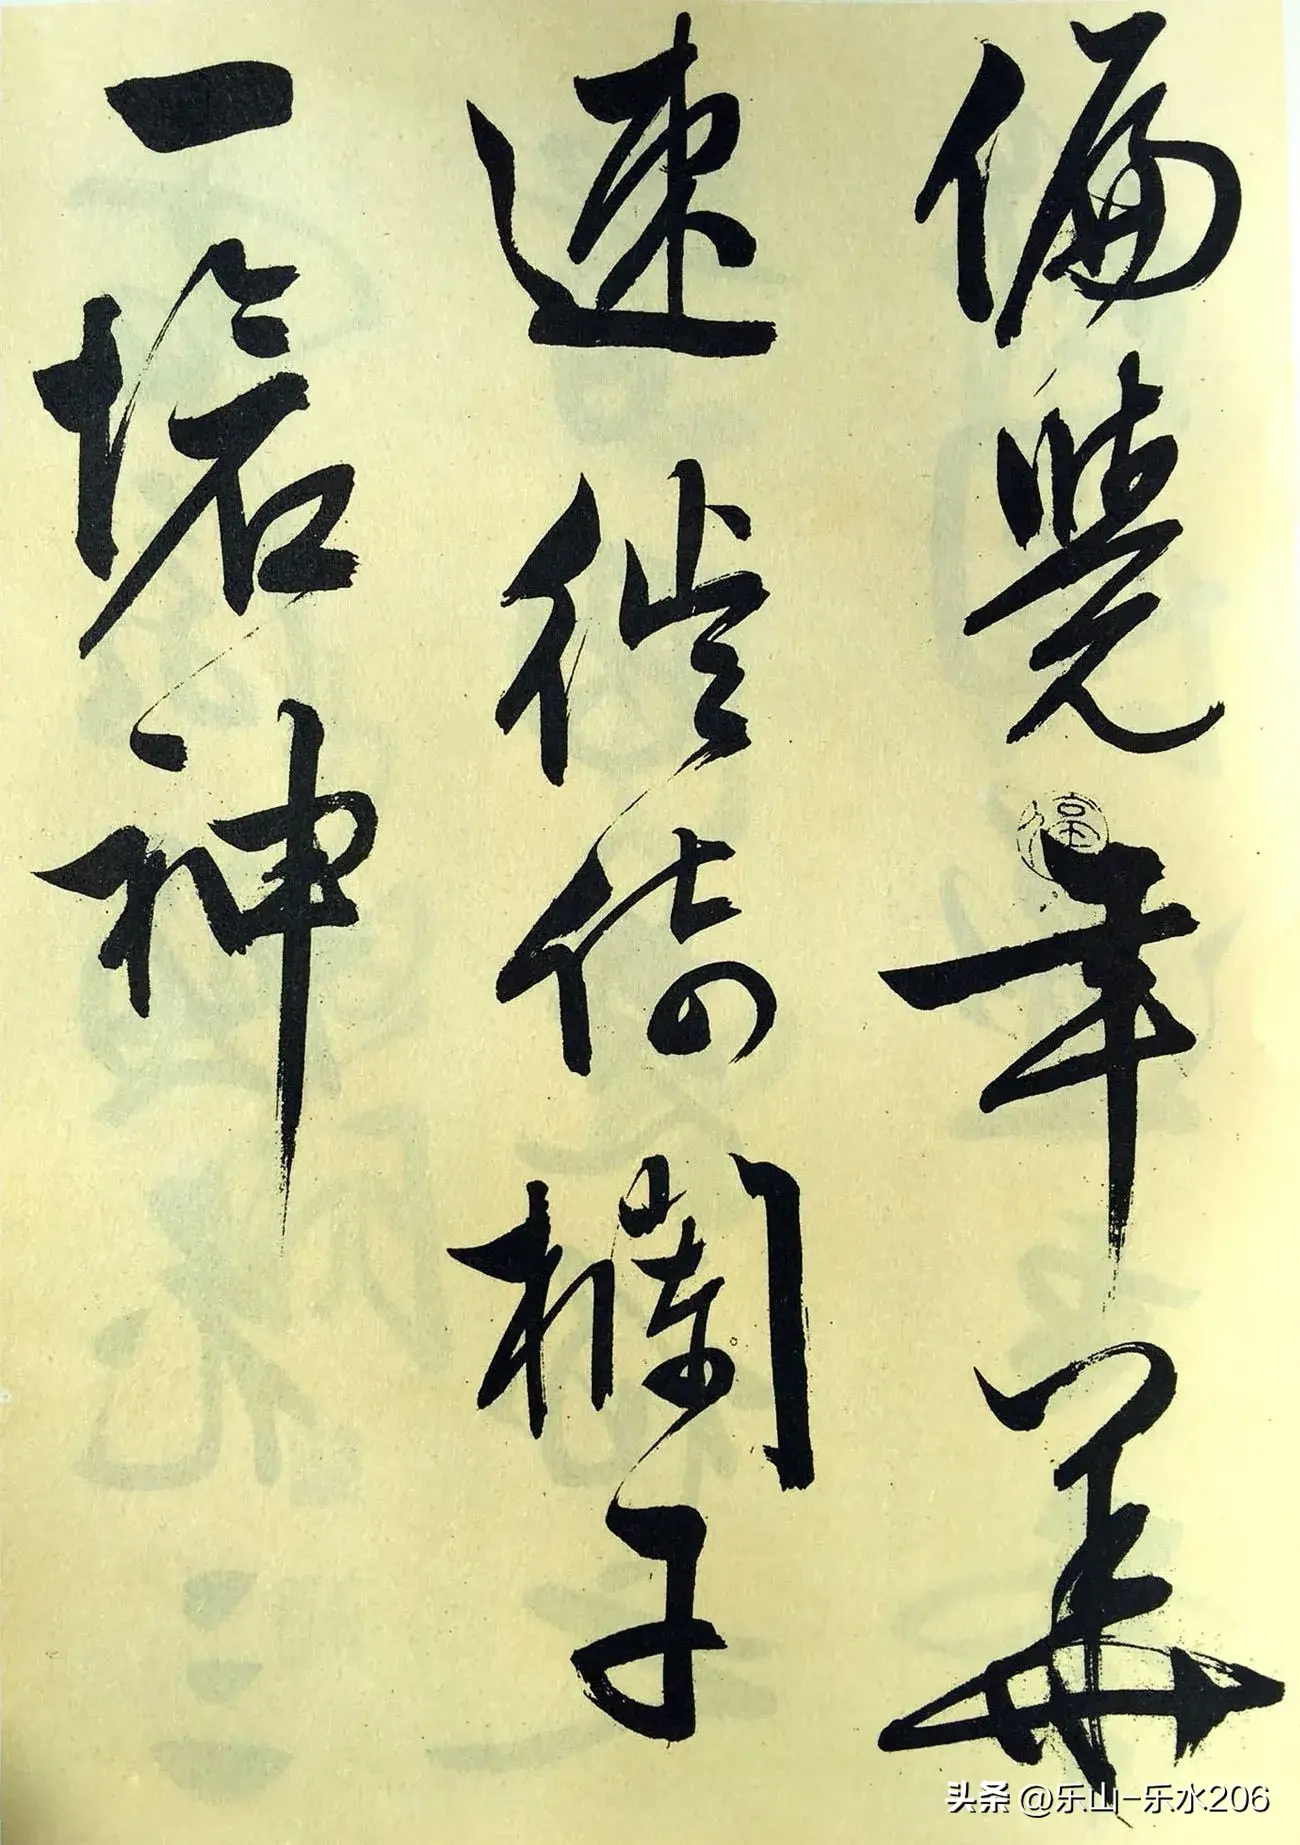 偏覺年華
速徙倚欄干
一愴神
头条 @乐山-乐水206